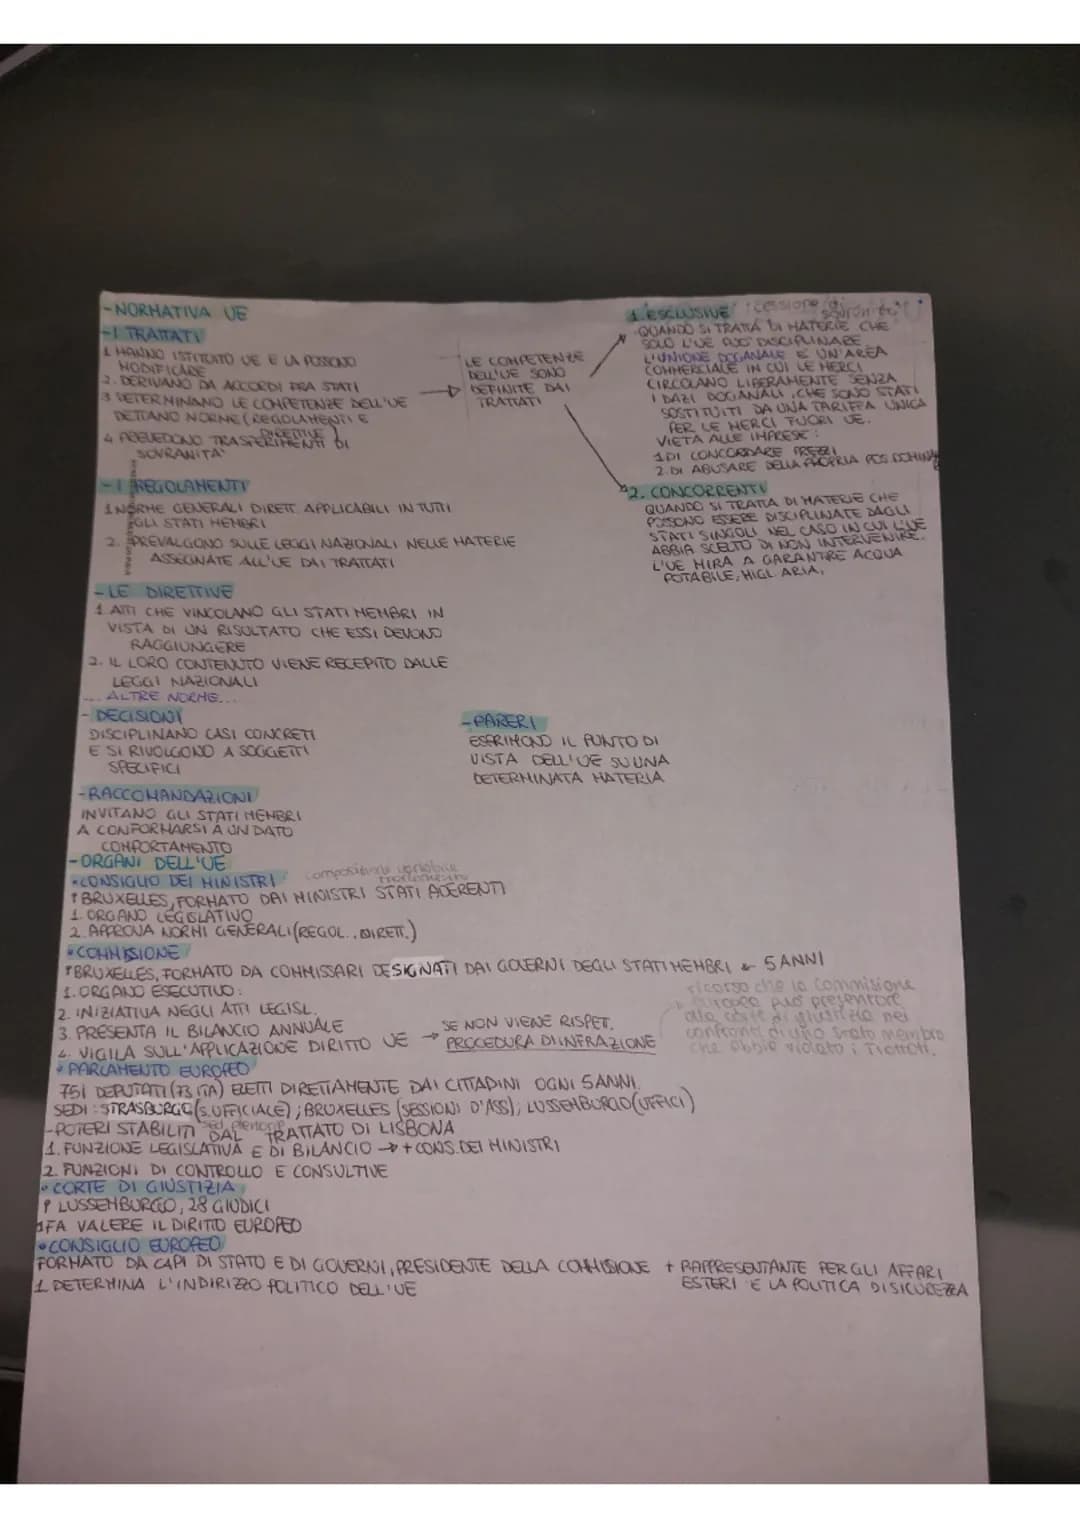 -NORMATIVA UE
-I TRATTATI
1 HANNO ISTITUITO UE E LA POSSONO
MODIFICARE
2. DERIVANO DA ACCORDI FRA STATI
3 DETERMINANO LE COMPETENZE DELL'UE
DETTANO NORME (REGOLAMENTI E
DIRETTIVE)
4 TRASFERIMENTI DI
SOVRANITA'
LE COMPETENZE
DELL'UE SONO
DEFINITE DAI
TRATTATI
1. ESCLUSIVE cessione di
QUANDO SI TRATTA DI MATERIE CHE
SOLO L'UE PUO' DISCIPLINARE
L'UNIONE DOGANALE E UN'AREA
COMMERCIALE IN CUI LE MERCI
CIRCOLANO LIBERAMENTE SENZA
I DAZI DOGANALI, CHE SONO STATI
SOSTITUITI DA UNA TARIFFA UNICA
PER LE MERCI FUORI UE.
VIETA ALLE IMPRESE:
1 DI CONCORDARE PREZZI
2. DI ABUSARE DELLA PROPRIA POS. DOMINA
2. CONCORRENTI
QUANDO SI TRATTA DI MATERIE CHE
POSSONO ESSERE DISCIPLINATE DAGLI
STATI SINGOLI NEL CASO IN CUI L'UE
ABBIA SCELTO DI NON INTERVENIRE.
L'UE MIRA A GARANTIRE ACQUA
POTABILE, MIGL. ARIA.
-I REGOLAMENTI
1 NORME GENERALI DIRETT. APPLICABILI IN TUTTI
GLI STATI MEMBRI
2. PREVALGONO SULLE LEGGI NAZIONALI NELLE MATERIE
ASSEGNATE ALL'UE DAI TRATTATI
-LE DIRETTIVE
1 ATTI CHE VINCOLANO GLI STATI MEMBRI IN
VISTA DI UN RISULTATO CHE ESSI DEVONO
RAGGIUNGERE
2. IL LORO CONTENUTO VIENE RECEPITO DALLE
LEGGI NAZIONALI
... ALTRE NORME...
-DECISIONI
DISCIPLINANO CASI CONCRETI
E SI RIVOLGONO A SOGGETTI
SPECIFICI
-PARERI
ESPRIMONO IL PUNTO DI
VISTA DELL'UE SU UNA
DETERMINATA MATERIA
-RACCOMANDAZIONI
INVITANO GLI STATI MEMBRI
A CONFORMARSI A UN DATO
COMPORTAMENTO
-ORGANI DELL'UE
•CONSIGLIO DEI MINISTRI composizione variabile
BRUXELLES, FORMATO DAI MINISTRI STATI ADERENTI
1. ORGANO LEGISLATIVO
2. APPROVA NORMI GENERALI (REGOL., DIRETT.)
•COMMISSIONE
BRUXELLES, FORMATO DA COMMISSARI DESIGNATI DAI GOVERNI DEGLI STATI MEMBRI 5 ANNI
1. ORGANO ESECUTIVO:
2. INIZIATIVA NEGLI ATTI LEGISL.
3. PRESENTA IL BILANCIO ANNUALE
4. VIGILA SULL'APPLICAZIONE DIRITTO UE → SE NON VIENE RISPET.
PROCEDURA DI INFRAZIONE
ricorso che la Commissione
europea può presentare
alla corte di giustizia nei
confronti di uno Stato membro
che abbia violato i Trattati.
•PARLAMENTO EUROPEO
751 DEPUTATI (73 ITA) ELETTI DIRETTAMENTE DAI CITTADINI OGNI 5 ANNI.
SEDI: STRASBURGO (S. UFFICIALE); BRUXELLES (SESSIONI D'ASS); LUSSEMBURGO (UFFICI)
-POTERI STABILITI DAL TRATTATO DI LISBONA
1. FUNZIONE LEGISLATIVA E DI BILANCIO → + CONS. DEI MINISTRI
2. FUNZIONI DI CONTROLLO E CONSULTIVE
•CORTE DI GIUSTIZIA
LUSSEMBURGO, 28 GIUDICI
1FA VALERE IL DIRITTO EUROPEO
•CONSIGLIO EUROPEO
FORMATO DA CAPI DI STATO E DI GOVERNI, PRESIDENTE DELLA COMMISSIONE + RAPPRESENTANTE PER GLI AFFARI
ESTERI E LA POLITICA DI SICUREZZA
1. DETERMINA L'INDIRIZZO POLITICO DELL'UE